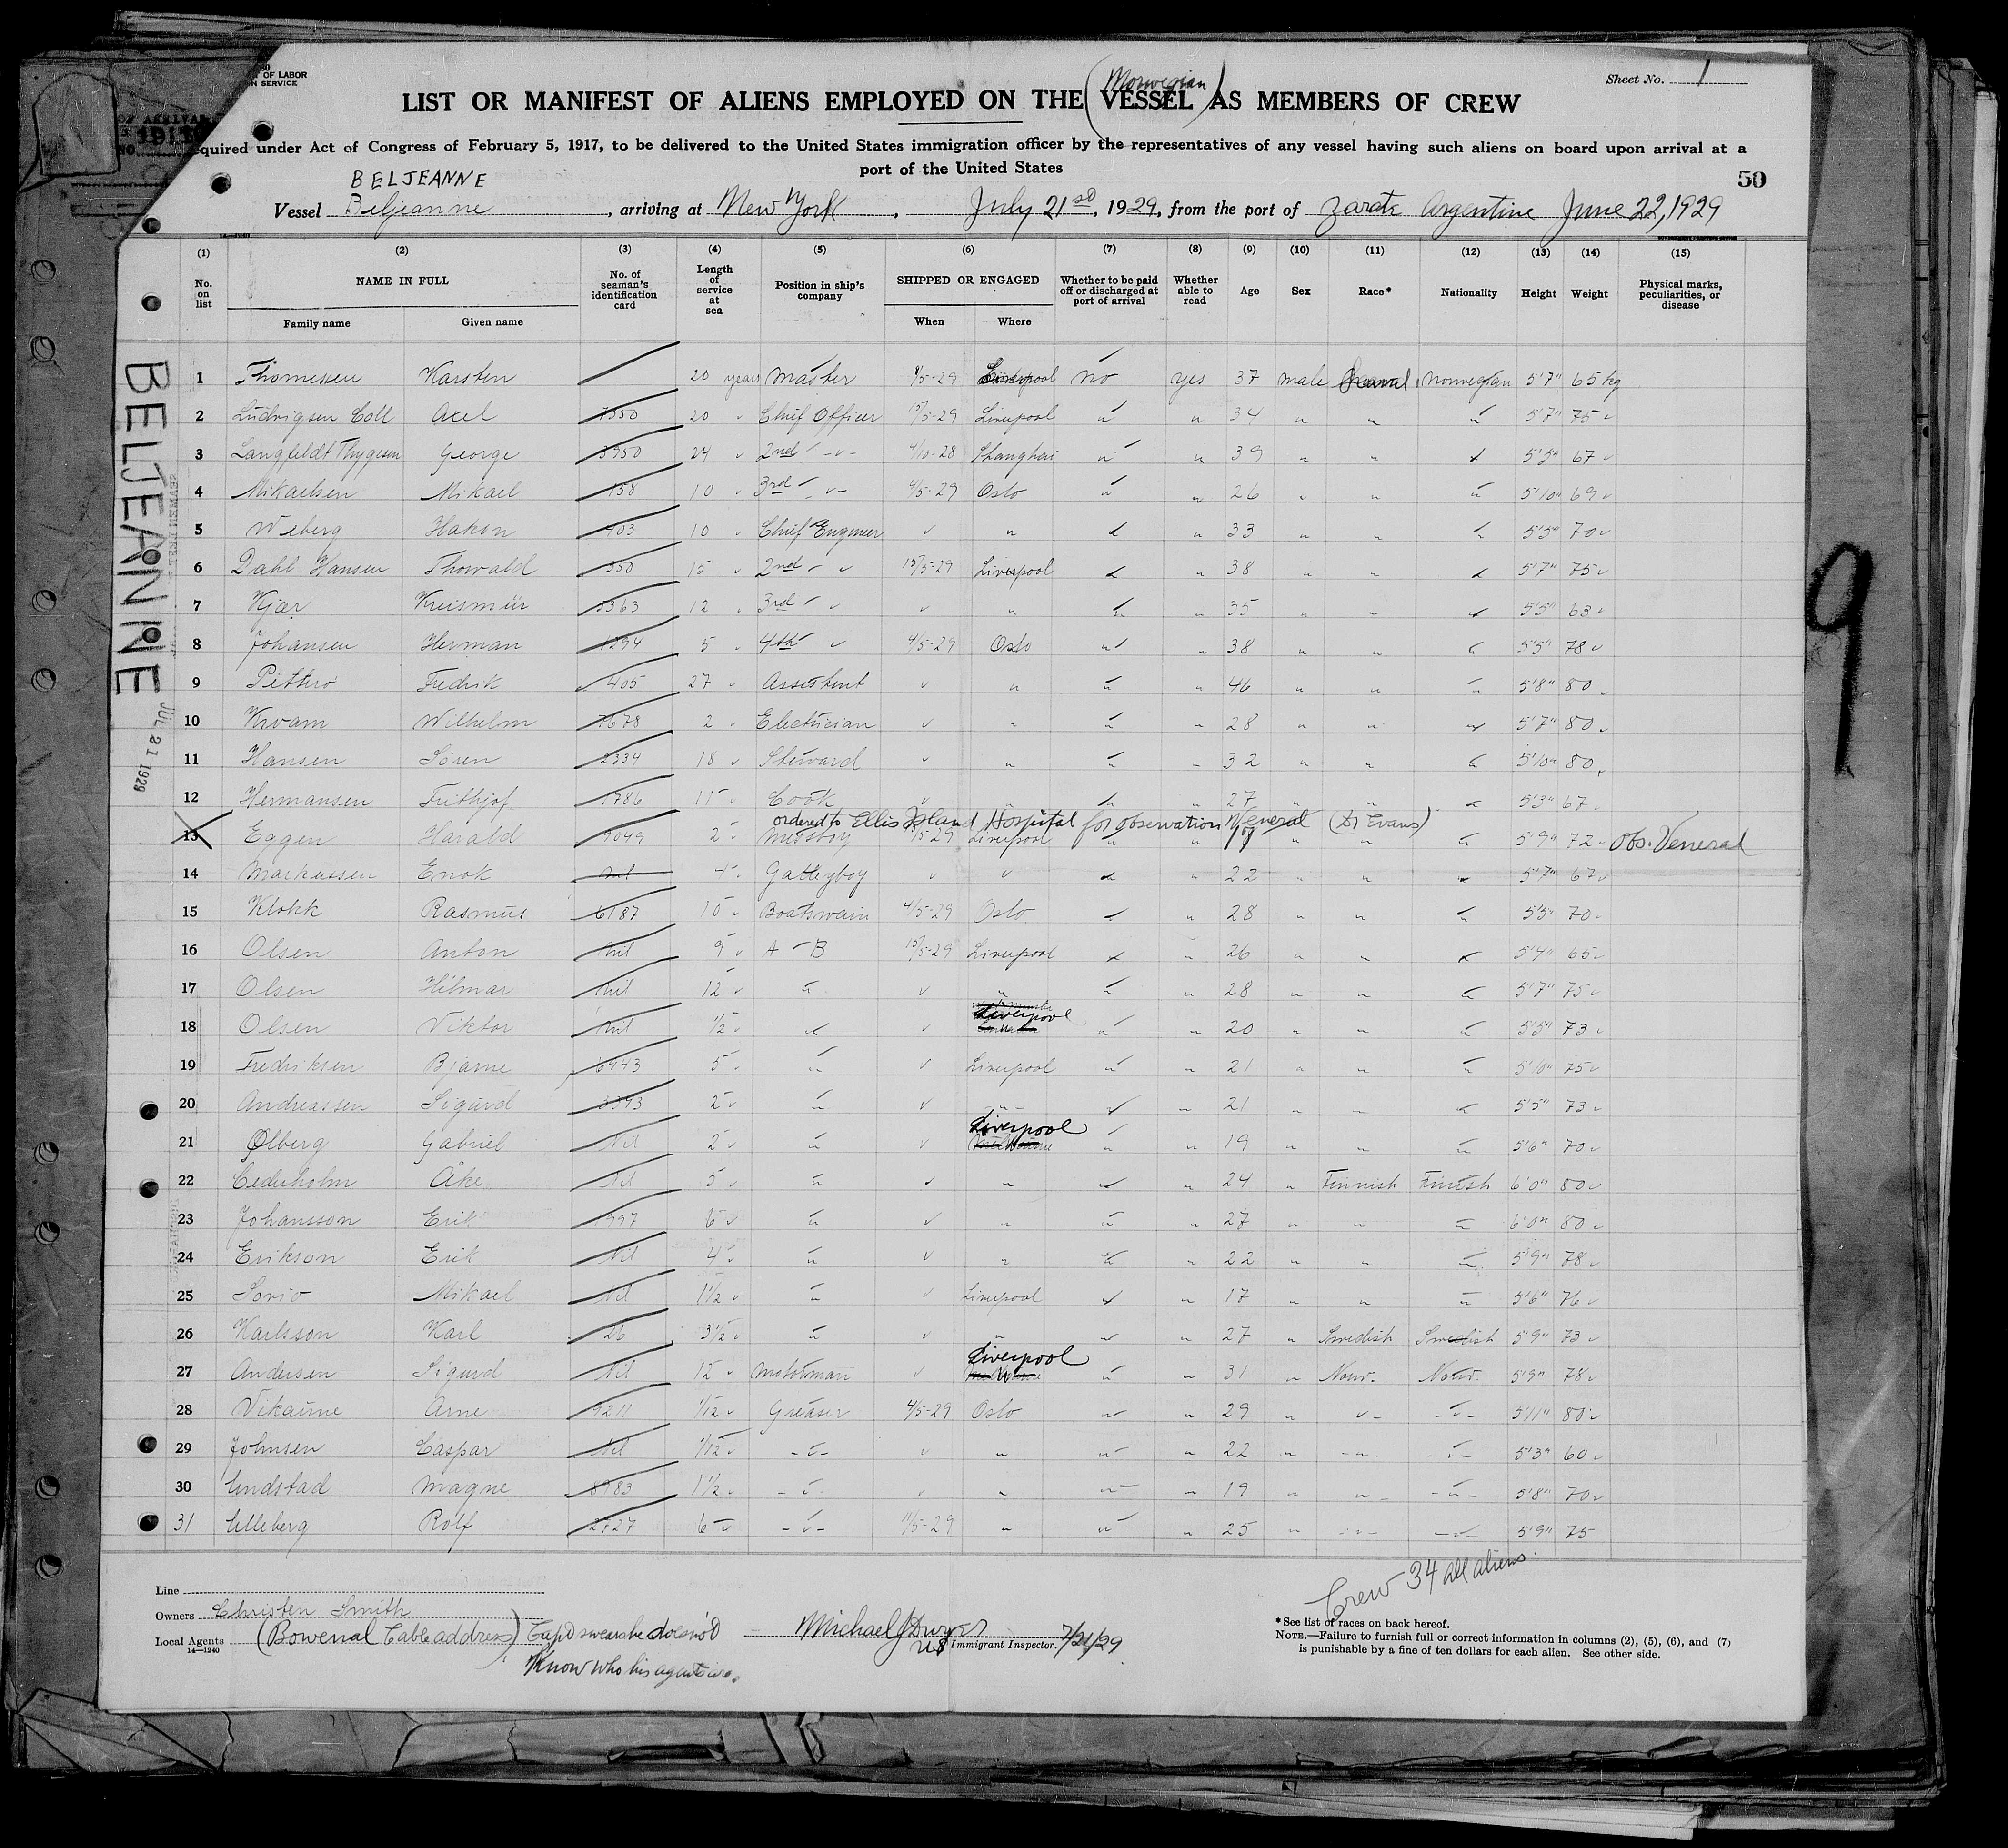 OF LABOR
N SERVICE
Sheet No. 1
(Norwegian)
LIST OR MANIFEST OF ALIENS EMPLOYED ON THE VESSEL AS MEMBERS OF CREW
equired under Act of Congress of February 5, 1917, to be delivered to the United States immigration officer by the representatives of any vessel having such aliens on board upon arrival at a
port of the United States
50
BELJEANNE
Vessel Beljeanne, arriving at New York, July 21st, 1929, from the port of Zarate Argentine June 22, 1929
(1) (2) (3) (4) (5) (6) (7) (8) (9) (10) (11) (12) (13) (14) (15)
No. on list NAME IN FULL No. of seaman's identification card Length of service at sea Position in ship's company SHIPPED OR ENGAGED Whether to be paid off or discharged at port of arrival Whether able to read Age Sex Race* Nationality Height Weight Physical marks, peculiarities, or disease
Family name Given name When Where
1 Thomessen Karsten 20 years Master Liverpool no yes 37 male Norwegian 5'7" 65 kg
2 Ludvigsen Coll Axel 20 " Chief Officer 15/5-29 Liverpool " " 34 " " " 5'7" 75 "
3 Langfeldt Thygesen George 3950 24 " 2nd " 4/10-28 Shanghai " " 39 " " " 5'5" 67 "
4 Mikaelsen Mikael 158 10 " 3rd " 4/5-29 Oslo " " 26 " " " 5'10" 69 "
5 Weberg Hakon 403 10 " Chief Engineer " " " " 33 " " " 5'5" 70 "
6 Dahl Hansen Thorvald 350 15 " 2nd " 15/5-29 Liverpool " " 38 " " " 5'7" 75 "
7 Kjær 3363 12 " 3rd " " " " " 35 " " " 5'5" 63 "
8 Johansen Herman 1294 5 " 4th " 4/5-29 Oslo " " 38 " " " 5'5" 78 "
9 Fredrik 405 27 " Assistent " " " " 46 " " " 5'8" 80 "
10 Kvam Wilhelm 2678 2 " Electrician " " " " 28 " " " 5'7" 80 "
11 Hansen Sören 2334 18 " Steward " " " " 32 " " " 5'10" 80 "
12 Hermansen Frithjof 1786 11 " Cook " " " " 27 " " " 5'3" 67 "
ordered to Ellis Island Hospital for observation Veneral (Dr Evans)
13 Eggen Harald 9049 2 " Messboy 15/5-29 Liverpool " " 19 " " " 5'9" 72 " Obs. Veneral
14 Markussen Enok nil 4 " Galleyboy " " " " 22 " " " 5'7" 67 "
15 Klokk Rasmus 6187 10 " Boatswain 4/5-29 Oslo " " 28 " " " 5'5" 70 "
16 Olsen Anton nil 9 " A - B 15/5-29 Liverpool " " 26 " " " 5'4" 65 "
17 Olsen Hilmar nil 12 " " " " " " 28 " " " 5'7" 75 "
18 Olsen Viktor nil 1/2 " " " Liverpool " " 20 " " " 5'5" 73 "
19 Fredriksen Bjarne 6943 5 " " " Liverpool " " 21 " " " 5'10" 75 "
20 Andreassen Sigurd 3393 2 " " " " " " 21 " " " 5'5" 73 "
21 Ølberg Gabriel Nil 2 " " " Liverpool " " 19 " " " 5'6" 70 "
22 Cederholm Åke Nil 5 " " " " " " 24 " Finnish Finish 6'0" 80 "
23 Johansson Erik 1997 6 " " " " " " 27 " " " 6'0" 80 "
24 Erikson Erik Nil 4 " " " " " " 22 " " " 5'9" 78 "
25 Mikael Nil 1 1/2 " " " Liverpool " " 17 " " " 5'6" 76 "
26 Karlsson Karl 26 3 1/2 " " " " " " 27 " Swedish Swedish 5'9" 73 "
27 Andersen Sigurd Nil 12 " Motorman " Liverpool " " 31 " Norw. Norw. 5'9" 78 "
28 Arne 9211 1/12 " Greaser 4/5-29 Oslo " " 29 " " " 5'11" 80 "
29 Johnsen Caspar Nil 1/12 " " " " " " 22 " " " 5'3" 60 "
30 Lundstad Magne 8983 1 1/2 " " " " " " 19 " " " 5'8" 70 "
31 Ulleberg Rolf 2727 6 " " 11/5-29 " " " 25 " " " 5'9" 75
BELJEANNE
JUL 21 1929
9
Crew 34 all aliens.
Line
Owners Christen Smith
Local Agents (Bowenal Cable address) Capt swears he doesn't
Know who his agent is.
14—1240
Michael J Dwyer
US Immigrant Inspector. 7/21/29
*See list of races on back hereof.
NOTE.—Failure to furnish full or correct information in columns (2), (5), (6), and (7)
is punishable by a fine of ten dollars for each alien. See other side.